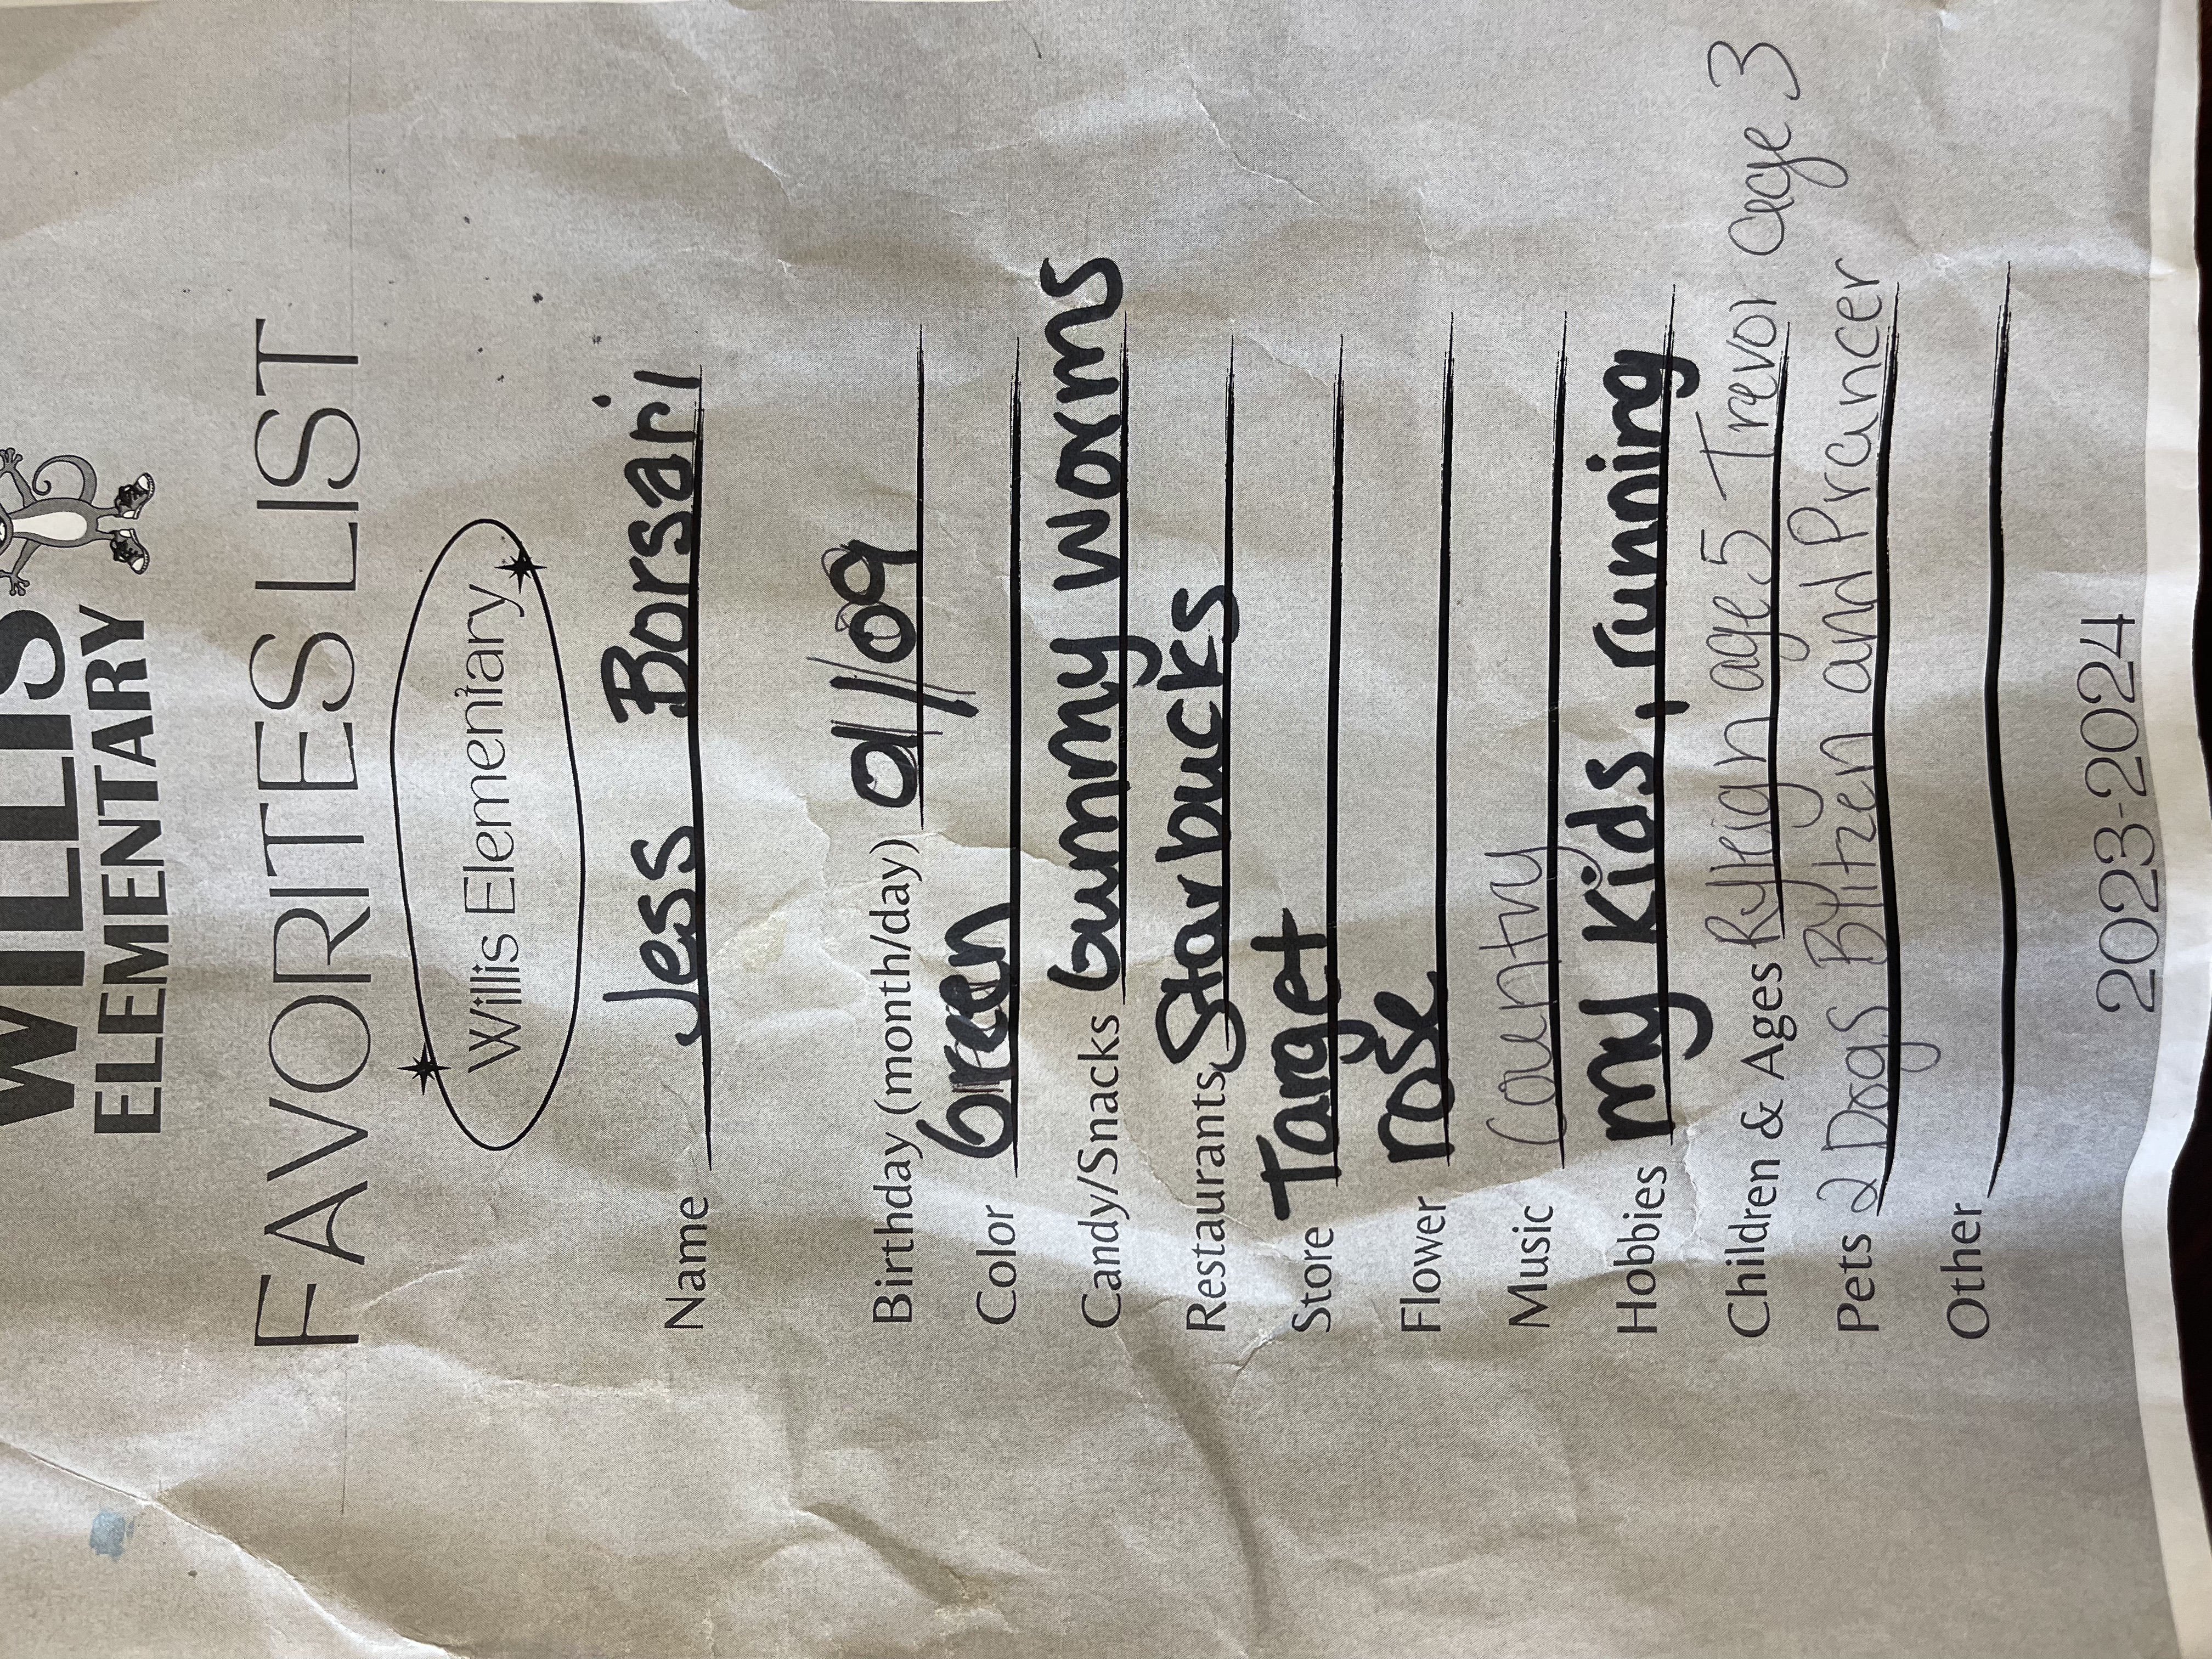 WILLIS
ELEMENTARY
FAVORITES LIST
Willis Elementary
Name Jess Borsari
Birthday (month/day) 01/09
Color Green
Candy/Snacks Gummy worms
Restaurants Starbucks
Store Target
Flower rose
Music Country
Hobbies my kids, running
Children & Ages Ryleign age 5 Trevor age 3
Pets 2 Dogs Blitzen and Prancer
Other
2023-2024